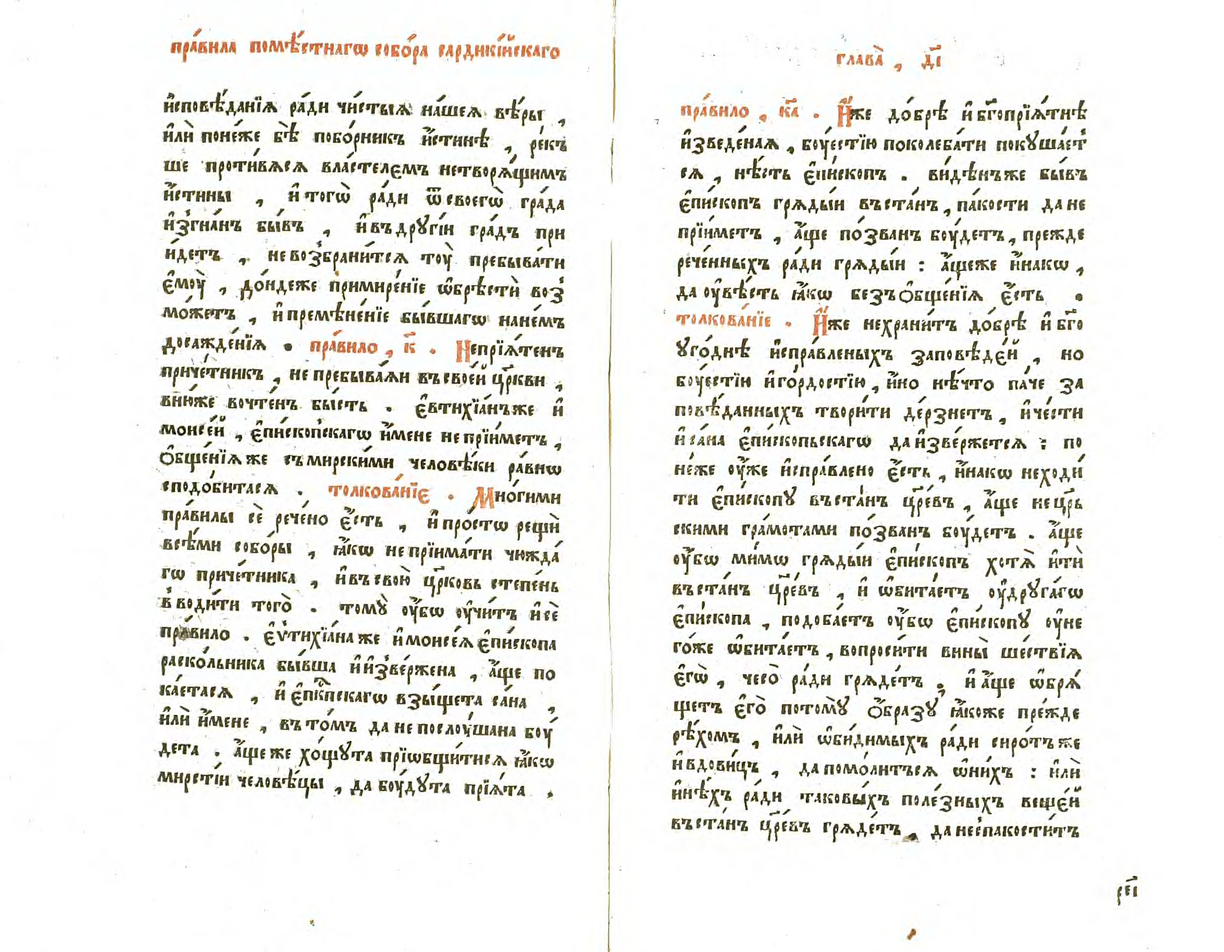 пра́вила помѣ́стнагѡ собо́ра сардикі́йскаго
и҆сповѣ́данїѧ ра́ди чи́стыѧ на́шеѧ вѣ́ры ,
и҆лѝ поне́же бѣ̀ побо́рникъ и҆́стинѣ , ре́къ
ше проти́вѧсѧ власте́лємъ нетворѧ́щимъ
и҆́стины , и҆ тогѡ̀ ра́ди ѿ своегѡ̀ гра́да
и҆згна́нъ бы́въ , и҆ въ дрꙋгі́и гра́дъ при
и́детъ , невозбрани́тсѧ тоу̀ пребыва́ти
є҆моу̀ , до́ндеже примире́нїе ѡ҆брѣстѝ воз̾
мо́жетъ , и҆ премѣне́нїе бы́вшагѡ нане́мъ
досажде́нїѧ . пра́вило , к҃ . Непрїѧ́тенъ
приче́тникъ , не пребыва́ѧи въ свое́й цр҃кви ,
вню́же вочте́нъ бы́сть . є҆втихїа́нъ же и҆
моисе́й , є҆пи́скопскагѡ и҆́мене не прїи́метъ ,
ѻ҆бще́нїѧ же съ мирски́ми человѣ́ки ра́внѡ
сподо́битасѧ . толкова́нїє . Мно́гими
пра́вилы сѐ рече́но є҆́сть , и҆ про́стѡ рещѝ
всѣ́ми собо́ры , ꙗ҆́кѡ не прїима́ти чюжда́
гѡ приче́тника , и҆ въ свою̀ цр҃ковь степе́нь
вводи́ти того̀ . томꙋ̀ оу҆́бѡ оу҆чи́тъ и҆ сѐ
пра́вило . є҆ѵтихїа́на же и҆ моисе́ѧ є҆пи́скопа
раско́льника бы́вша и҆ и҆зве́ржена , а҆́ще по
ка́етасѧ , и҆ є҆пи́кпскагѡ взы́щета са́на ,
и҆лѝ и҆́мене , въ то́мъ да не послоу́шана боу́
дета . а҆́ще же хо́щута прїѡбщи́тисѧ ꙗ҆́кѡ
мирсті́и человѣ́цы , да боу́дута прїѧ́та .
глава̀ , д҃і
пра́вило , к҃а . И҆́же до́брѣ и҆ бг҃опрїѧ́тнѣ
и҆зведе́наѧ , боу́естїю поколеба́ти покꙋша́ет
сѧ , нѣ́сть є҆пи́скопъ . ви́дѣнъ же бы́въ
є҆пи́скопъ грѧды́и въ ста́нъ , па́кости да не
прїи́метъ , а҆́ще по́званъ боу́детъ , пре́жде
рече́нныхъ ра́ди грѧды́и : а҆́ще же и҆́накѡ ,
да оу҆вѣ́сть ꙗ҆́кѡ безъ ѻ҆бще́нїѧ є҆́сть .
толкова́нїе . И҆́же нехрани́тъ до́брѣ и҆ бг҃о
уго́днѣ и҆спра́вленыхъ за́повѣдей , но
боу́естїи и҆ го́рдостїю , и҆́но нѣ́что па́че за
повѣ́данныхъ твори́ти де́рзнетъ , и҆ че́сти
и҆ са́на є҆пи́скопьскагѡ да и҆зве́ржетсѧ : по
не́же оу҆́же и҆спра́влено є҆́сть , и҆́накѡ неходи́
ти є҆пи́скопꙋ въ ста́нъ цр҃е́въ , а҆́ще не цр҃ь
скими гра́мотами по́званъ боу́детъ . а҆́ще
оу҆́бѡ ми́мѡ грѧды́и є҆пи́скопъ хотѧ̀ ити
въ ста́нъ цр҃е́въ , и҆ ѡ҆бита́етъ оу҆ дрꙋга́гѡ
є҆пи́скопа , подоба́етъ оу҆́бѡ є҆пи́скопꙋ оу҆ не
го́же ѡ҆бита́етъ , вопроси́ти вины̀ ше́ствїѧ
є҆гѡ̀ , чесо̀ ра́ди грѧде́тъ . и҆ а҆́ще ѡ҆брѧ́
щетъ є҆го̀ потомꙋ̀ ѻ҆́бразꙋ ꙗ҆́коже пре́жде
рѣ́хомъ , и҆лѝ ѡ҆би́димыхъ ра́ди сиро́тъ же
и҆ вдови́цъ , да помо́литьсѧ ѡ҆ ни́хъ : и҆лѝ
и҆нѣ́хъ ра́ди таковы́хъ поле́зныхъ веще́й
въ ста́нъ цр҃е́въ грѧде́тъ , да неспакости́тъ
рє҃і